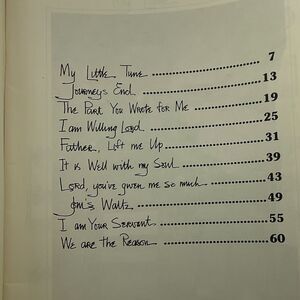 My Little Tune 7
Journey's End 13
The Part You Wrote for Me 19
I am Willing Lord 25
Father, Lift me Up 31
It is Well with my Soul 39
Lord, you've given me so much 43
Jeni's Waltz 49
I am Your Servant 55
We are the Reason 60